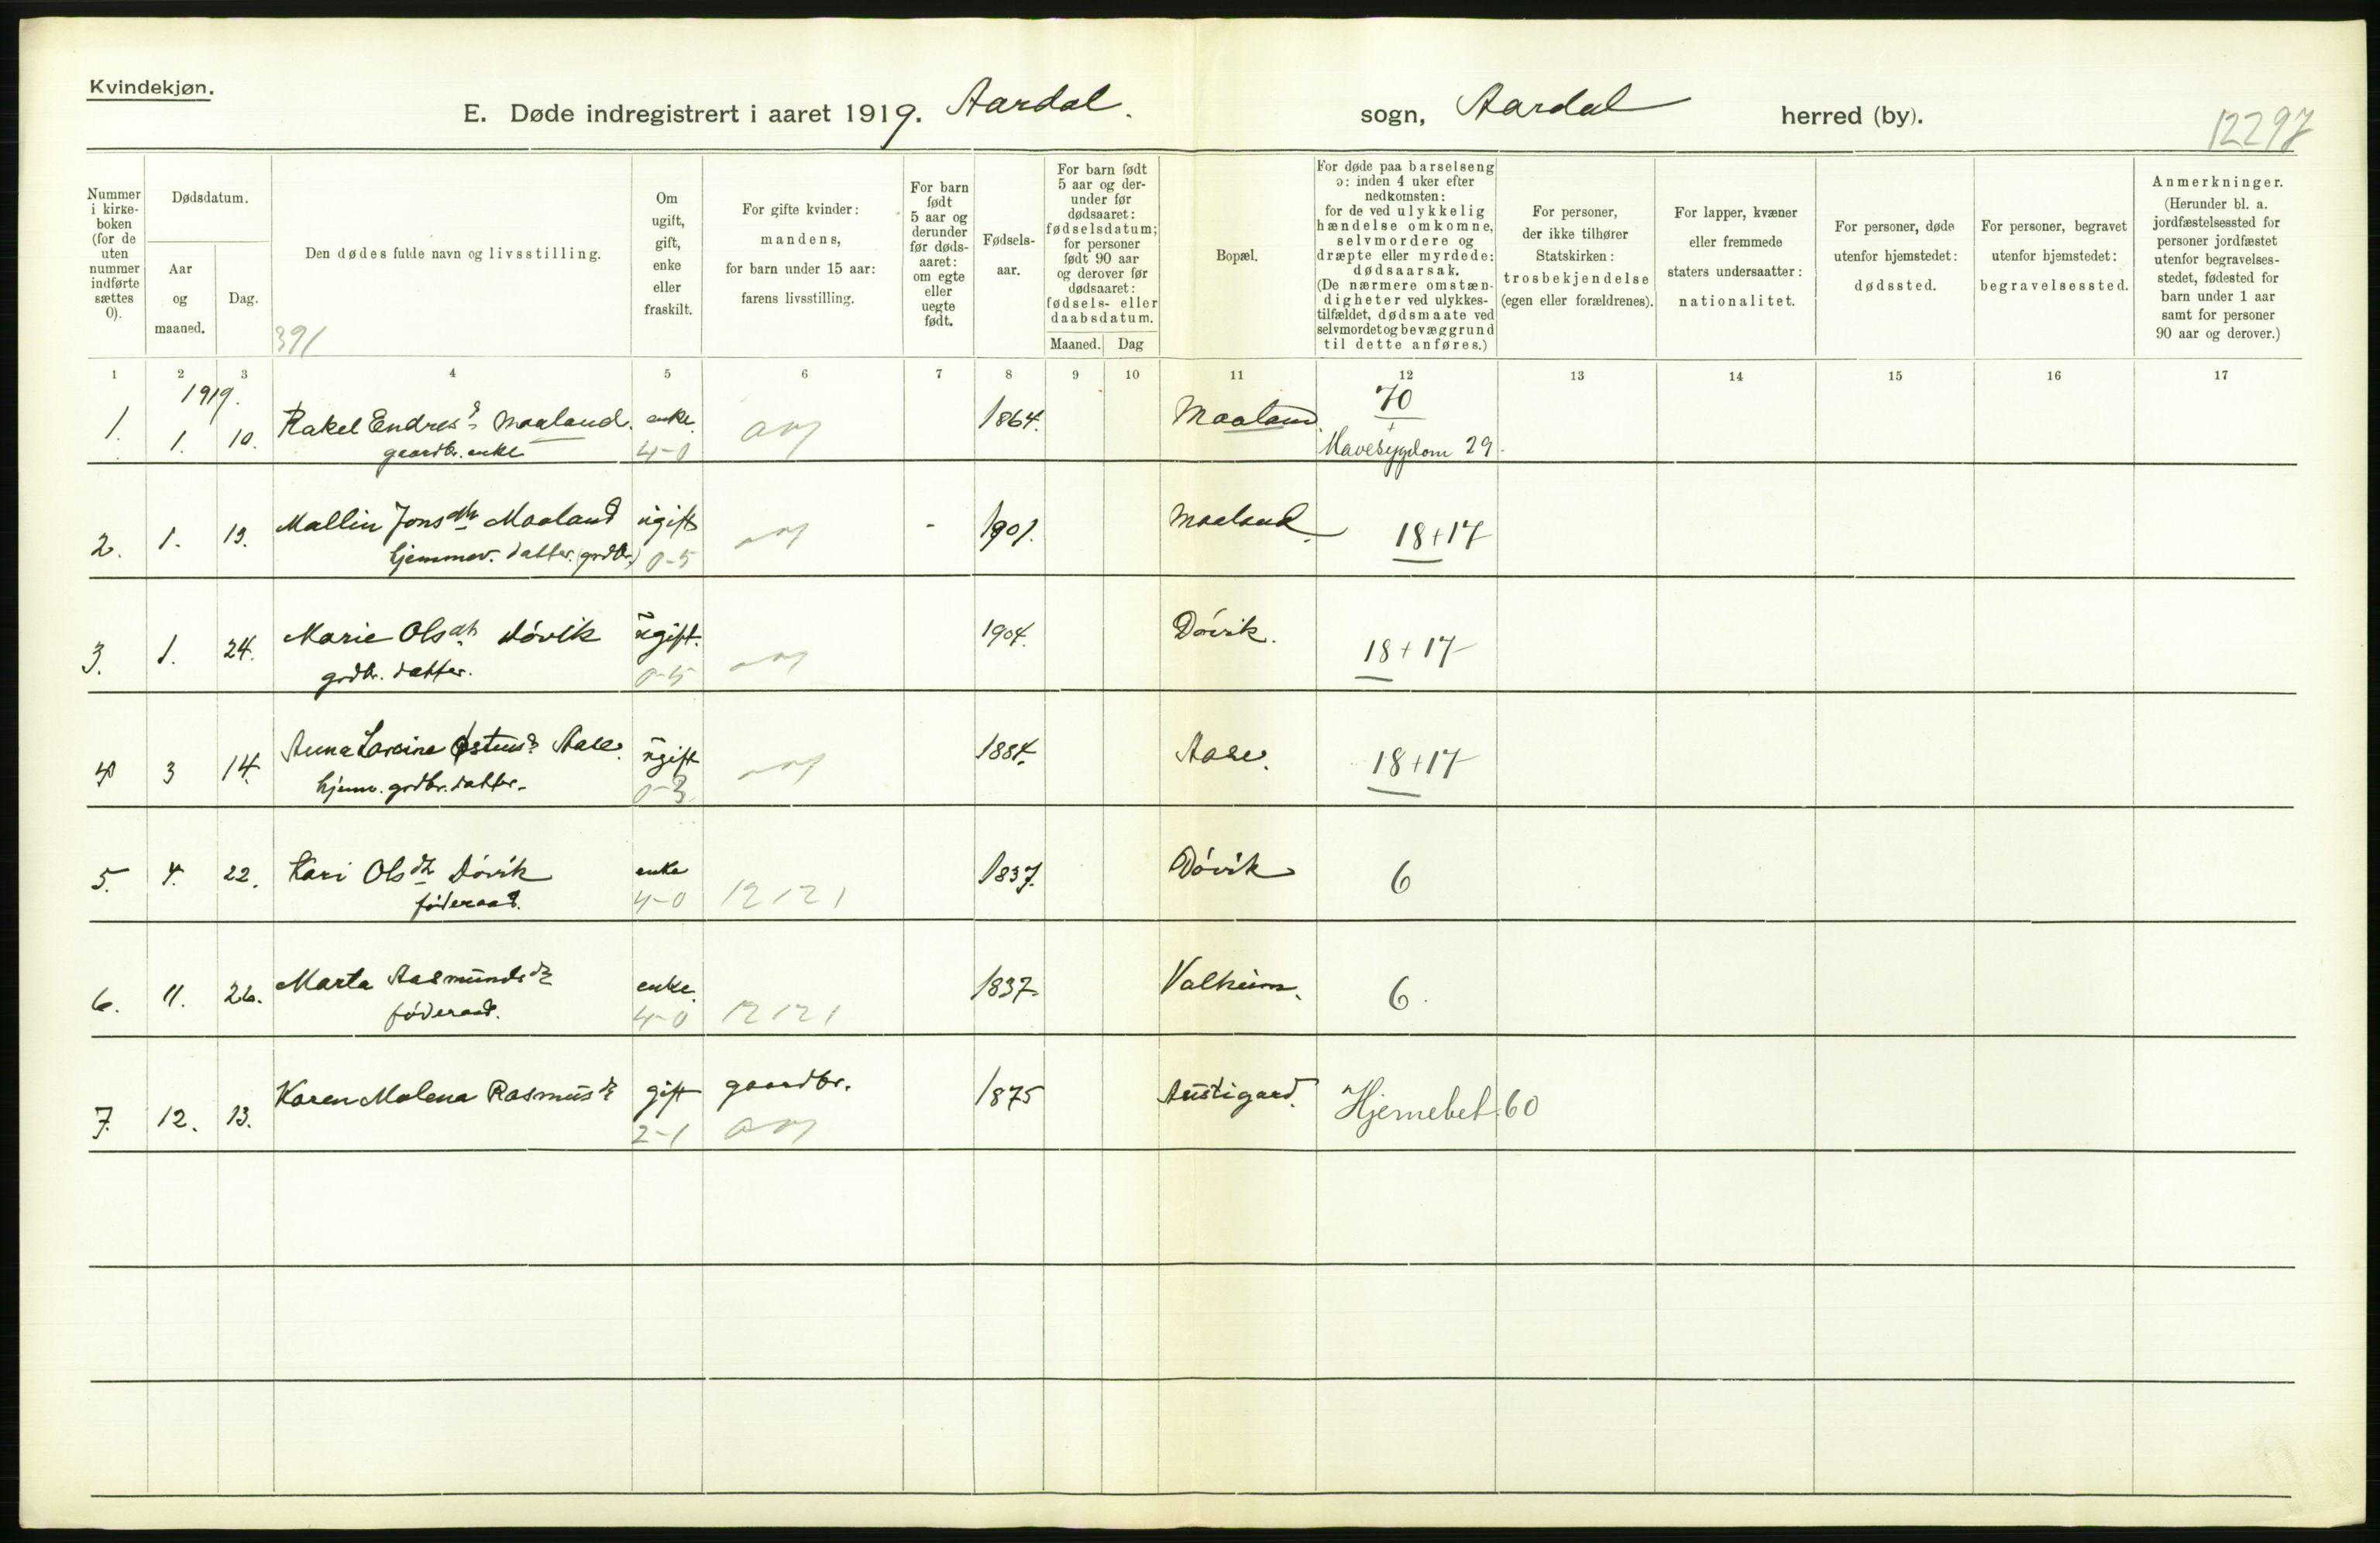 Kvindekjøn.
E. Døde indregistrert i aaret 1919. Aardal. sogn, Aardal herred (by).
12297
Nummer i kirke- boken (for de uten nummer indførte sættes 0).
Dødsdatum.
Aar og maaned.
Dag.
Den dødes fulde navn og livsstilling.
391
Om ugift, gift, enke eller fraskilt.
For gifte kvinder: mandens, for barn under 15 aar: farens livsstilling.
For barn født 5 aar og derunder før døds- aaret: om egte eller uegte født.
Fødsels- aar.
For barn født 5 aar og der- under før dødsaaret: fødselsdatum; for personer født 90 aar og derover før dødsaaret: fødsels- eller daabsdatum.
Maaned. Dag
Bopæl.
For døde paa barselseng ɔ: inden 4 uker efter nedkomsten: for de ved ulykkelig hændelse omkomne, selvmordere og dræpte eller myrdede: dødsaarsak. (De nærmere omstæn- digheter ved ulykkes- tilfældet, dødsmaate ved selvmordet og bevæggrund til dette anføres.)
For personer, der ikke tilhører Statskirken: trosbekjendelse (egen eller forældrenes).
For lapper, kvæner eller fremmede staters undersaatter: nationalitet.
For personer, døde utenfor hjemstedet: dødssted.
For personer, begravet utenfor hjemstedet: begravelsessted.
Anmerkninger. (Herunder bl. a. jordfæstelsessted for personer jordfæstet utenfor begravelses- stedet, fødested for barn under 1 aar samt for personer 90 aar og derover.)
1 2 3 4 5 6 7 8 9 10 11 12 13 14 15 16 17
1919.
1. 1. 10. Rakel Endresd Maaland. enke. 1864. Maaland. 70
gaardbr. enke 4-0 Mavesygdom 29.
2. 1. 13. Mallin Jonsdtr Maaland ugift - 1901. Maaland. 18+17
hjemmev. datter. (grdbr.) 0-5
3. 1. 24. Marie Olsdtr Dövik ugift. 1904. Dövik. 18+17
grdbr. datter. 0-5
4 3 14. Anna Lavina Østensd Aase. ugift 1884. Aase. 18+17
hjemv. grdbr. datter. 0-3
5. 4. 22. Kari Olsdtr Dövik enke 1837. Dövik 6
föderaad. 4-0 12121
6. 11. 26. Marta Aasmundsdtr enke. 1837. Valheim. 6.
föderaad. 4-0 12121
7. 12. 13. Karen Malena Rasmusdtr gift gaardbr. 1875 Austigard. Hjernebet. 60
2-1